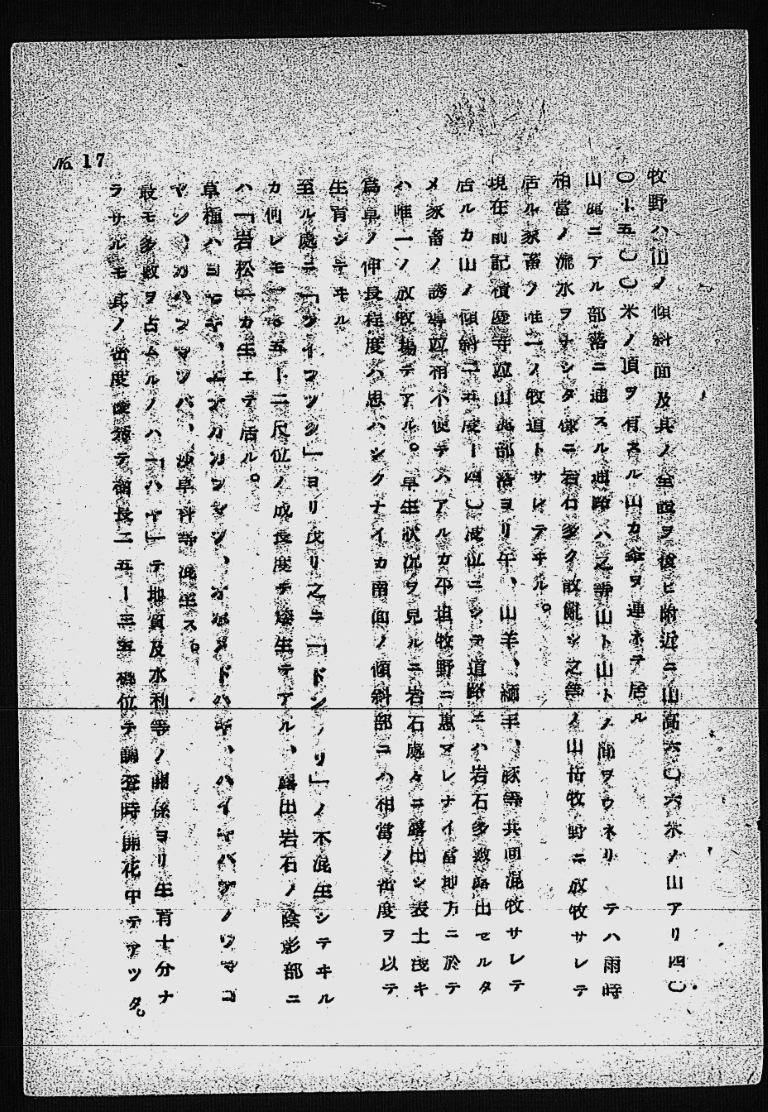 牧野ハ山ノ傾斜面及其ノ全部ヲ後ヒ附近ニ山高六〇六米ノ山アリ四〇
〇ー五〇〇米ノ頂ヲ有スル山カ傘ヲ連ネテ居ル
山麓ニアル部落ニ通スル通路ハ之等山ト山トノ間ヲウネリ テハ雨時
相當ノ流水ヲサシタ 様ニ岩石多ク散亂シ之等ノ山岳牧野ニ放牧サレテ
居ル家畜ノ唯一ノ牧道トサレテヰル。
現在前記 寺竝山麓部落ヨリ牛、山羊、緬羊、豚等共同混牧サレテ
居ルカ山ノ傾斜二五度ー四〇度位ニシテ道路ニハ岩石多數露出セルタ
メ家畜ノ誘導竝稍不便テハアルカ平坦牧野ニ惠マレナイ當地方ニ於テ
ハ唯一ノ放牧場テアル。草生狀況ヲ見ルニ岩石處々ニ露出シ表土淺キ
爲草ノ伸長程度ハ思ハシクナイカ南面ノ傾斜部ニハ相當ノ密度ヲ以テ
生育シテヰル
至ル處ニ「 ツ 」ヨリ茂リ之ニ「ドン リ」ノ木混生シテヰル
カ何レモ一.五ー二尺位ノ成長度テ矮生テアル、露出岩石ノ陰影部ニ
ハ「岩松」カ生エテ居ル。
草種ハヨモギ、 、オホメドハギ、ハイ
ヤシ、カハラマツバ、莎草科等混生ス。
最モ多數ヲ占ムルノハ「ハギ」テ地質及水利等ノ關係ヨリ生育十分ナ
ラサルモ其ノ密度 テ草長二五ー三五糎位テ調査時開花中テアツタ。
№ 17